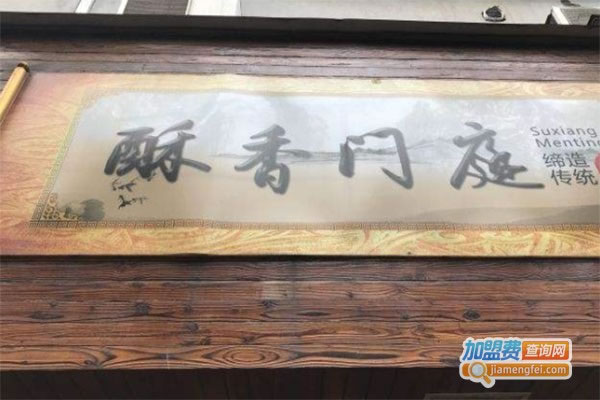 酥香门庭
Suxiang
Menting
缔造
传统
加盟费查询网
jiamengfei.com